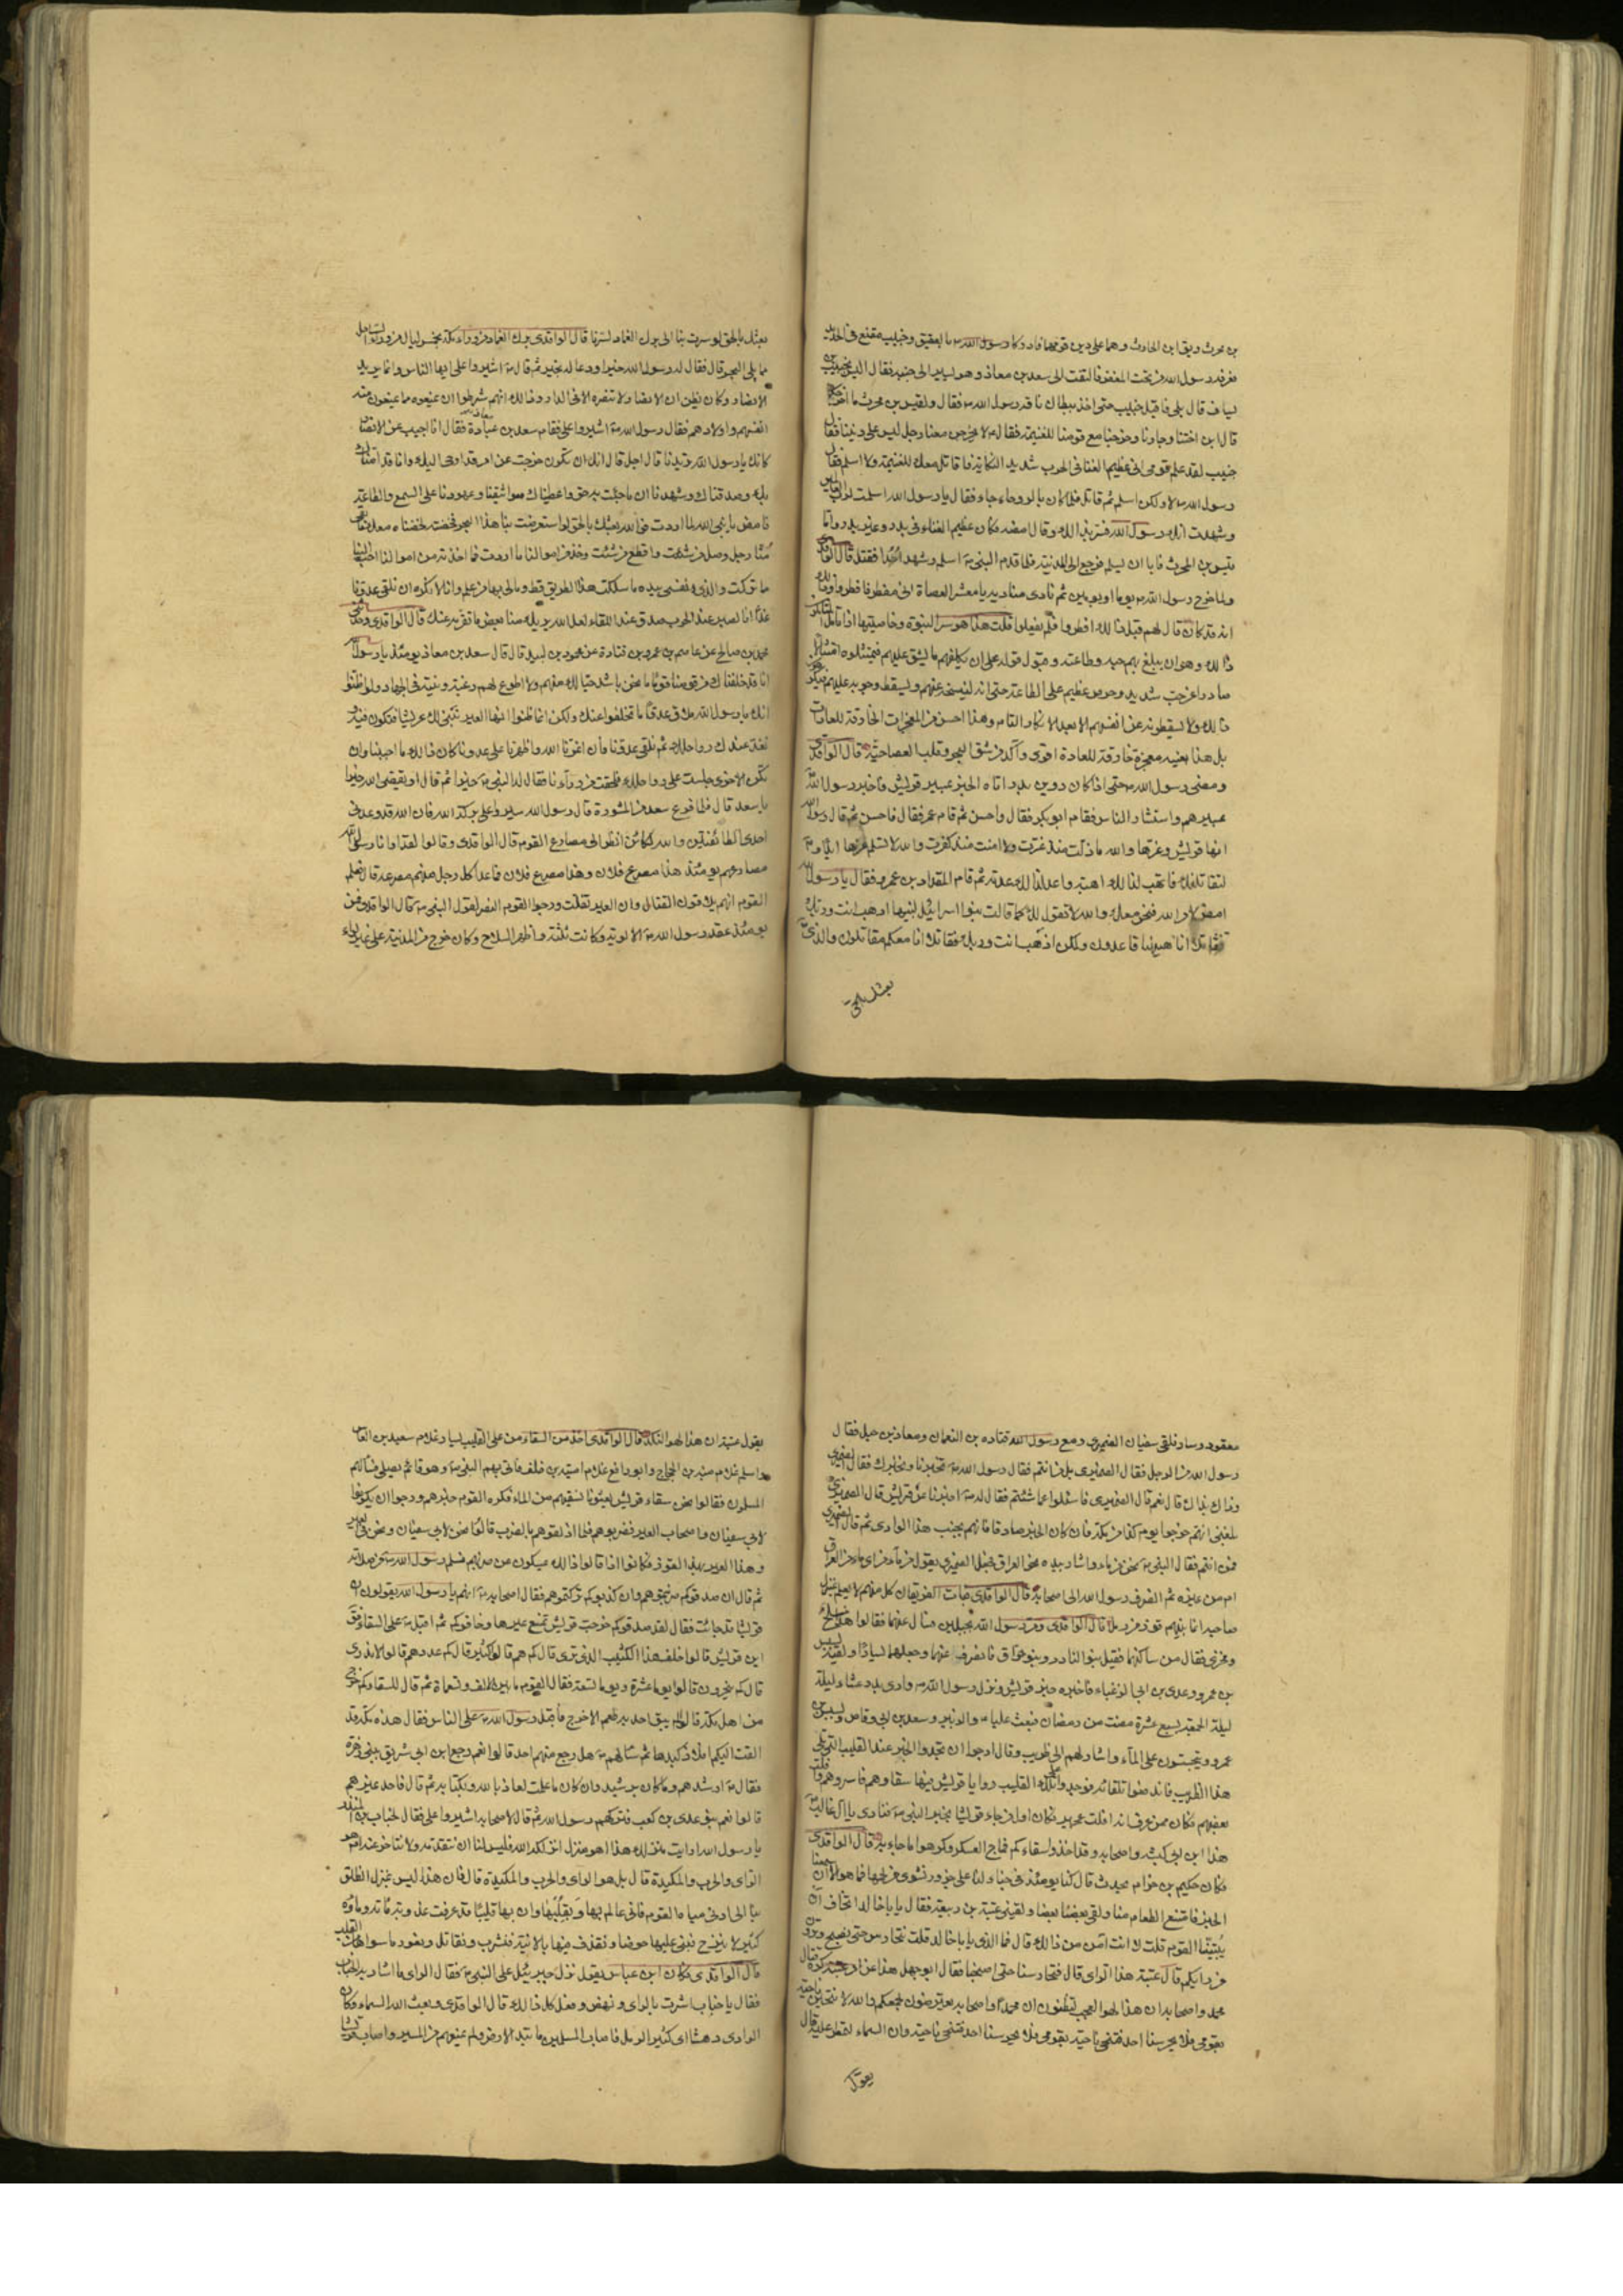 بن محرث ويق ابن الحادث وهما على دين قومهما فادركا رسول الله ص بالعقيق وخبيب مقنع في الحديد
فعرفه رسول الله من تحت المغفر فالتفت الى سعد بن معاذ وهو يسير الى جنبه فقال اليس بخبيب بن
يساف قال بلى فاقبل خبيب حتى اخذ ببطان ناقة رسول الله ص فقال ولقيس بن محرث ما اخرجكما
قال ابن اختنا وجارنا وخرجنا مع قومنا للغنيمة فقال ص لا يخرجن معنا رجل ليس على ديننا فقال
خبيب لقد علم قومي اني عظيم الغنا في الحرب شديد النكاية فاقاتل معك للغنيمة ولا اسلم فقال
رسول الله ص لا ولكن اسلم ثم قاتل فلما كان بالروحاء جاء فقال يا رسول الله اسلمت لرب العالمين
وشهدت انك رسول الله فسر بذلك وقال امضه فكان عظيم الغناء في بدر وغير بدر واما
قيس بن المحرث فابا ان يسلم فرجع الى المدينة فلما قدم النبي ص اسلم وشهد احدا فقتل قال الواقدي
ولما خرج رسول الله ص يوما او يومين ثم نادى مناديه يا معشر العصاة اني مفطر فافطروا وذلك
انه قد كان قال لهم قبل ذلك افطروا فلم يفعلوا قلت هذا هو سر النبوة وخاصيتها اذا تامل المتاملون
ذلك وهو ان يبلغ بهم حبه وطاعته وقبول قوله على ان يكلفهم ما يشق عليهم فيمتثلوه امتثالا
صادرا عن حب شديد وحرص عظيم على الطاعة حتى انه لينسخه عنهم ويسقط وجوبه عليهم فيكرهون
ذلك ولا يسقطونه عن انفسهم الا بعد الانكار التام وهذا احسن من المعجزات الخارقة للعادات
بل هذا بعينه معجزة خارقة للعادة اقوى وآكد من شق البحر وقلب العصا حية قال الواقدي
ومضى رسول الله ص حتى اذا كان دوين بدر اتاه الخبر بمسير قريش فاخبر رسول الله
بمسيرهم واستشار الناس فقام ابو بكر فقال واحسن ثم قام عمر فقال فاحسن ثم قال يا رسول الله
انها قريش وعزها والله ما ذلت منذ عزت ولا امنت منذ كفرت والله لا تسلم عزها ابدا و
لتقاتلنك فاتهب لذلك اهبته واعد لذلك عدته ثم قام المقداد بن عمرو فقال يا رسول الله
امض لامر الله فنحن معك والله لا نقول لك كما قالت بنوا اسرائيل لنبيها اذهب انت وربك
فقاتلا انا ههنا قاعدون ولكن اذهب انت وربك فقاتلا انا معكم مقاتلون والذي
بعثك بالحق
بعثك بالحق لو سرت بنا الى برك الغماد لسرنا قال الواقدي برك الغماد من وراء مكة بخمس ليال من وراء الساحل
مما يلى البحر قال فقال له رسول الله خيرا ودعا له بخير ثم قال ص اشيروا على ايها الناس وانما يريد
الانصار وكان يظن ان الانصار لا تنصره الا في الدار وذلك انهم شرطوا ان يمنعوه مما يمنعون منه
انفسهم واولادهم فقال رسول الله ص اشيروا على فقام سعد بن عبادة فقال انا اجيب عن الانصار
كانك يا رسول الله تريدنا قال اجل قال انك ان تكون خرجت عن امر قد اوحى اليك وانا قد امنا
بك وصدقناك وشهدنا ان ما جئت به حق واعطيناك مواثيقنا وعهودنا على السمع والطاعة
فامض يا نبي الله لما اردت فو الذي بعثك بالحق لو استعرضت بنا هذا البحر فخضت لخضناه معك ما بقي
منا رجل وصل من شئت واقطع من شئت وخذ من اموالنا ما اردت فما اخذته من اموالنا احب الينا
مما تركت والذي نفسي بيده ما سلكت هذا الطريق قط وما لي بها من علم وانا لا نكره ان نلقى عدونا
غدا انا لصبر عند الحرب صدق عند اللقاء لعل الله يريك منا بعض ما تقر به عينك قال الواقدي وحدثني
محمد بن صالح عن عاصم بن عمر بن قتادة عن محمود بن لبيد قال قال سعد بن معاذ يومئذ يا رسول الله
انا قد خلفناك من قومنا قوما ما نحن باشد حبا لك منهم ولا اطوع لهم رغبة ونية في الجهاد ولو ظنوا
انك يا رسول الله ملاق عدوا ما تخلفوا عنك ولكن انما ظنوا انها العير نبني لك عريشا فتكون فيه
ونعد عندك رواحلك ثم نلقى عدونا فان اعزنا الله واظهرنا على عدونا كان ذلك ما احببنا وان
تكن الاخرى جلست على رواحلك فلحقت من وراءنا فقال له النبي ص خيرا ثم قال او يقضي الله خيرا
يا سعد قال فلما فرغ سعد من المشورة قال رسول الله سيروا على بركة الله فان الله قد وعدني
احدى الطائفتين والله لكاني انظر الى مصارع القوم قال الواقدي وقالوا لقد ارانا رسول الله
مصارعهم يومئذ هذا مصرع فلان وهذا مصرع فلان فما عدا كل رجل منهم مصرعه قال فعلم
القوم انهم يلاقون القتال وان العير تفلت ورجوا القوم النصر لقول النبي ص قال الواقدي فمن
يومئذ عقد رسول الله ص الالوية وكانت ثلثة واظهر السلاح وكان خرج من المدينة على غير لواء
معقود وسار فلقى سفيان الضمري ومع رسول الله قتادة بن النعمان ومعاذ بن جبل فقال
رسول الله من الرجل فقال الضمري بل من انتم فقال رسول الله ص تخبرنا ونخبرك فقال الضمري
وذاك بذاك قال نعم قال الضمري فاسئلوا عما شئتم فقال له ص اخبرنا عن قريش قال الضمري
بلغني انهم خرجوا يوم كذا من مكة فان كان الخبر صادقا فانهم بجنب هذا الوادي ثم قال الضمري
فمن انتم فقال النبي ص نحن من ماء واشار بيده نحو العراق فجعل الضمري يقول من ماء من اي ماء من العراق
ام من غيره ثم انصرف رسول الله الى اصحابه قال الواقدي فبات الفريقان كل منهم لا يعلم بمنزل
صاحبه انما بينهم قوز من رمل قال الواقدي ومر رسول الله بجبلين فسال عنهما فقالوا هذا مسلح
ومخرى فقال من ساكنهما فقيل بنو النار وبنو حراق فانصرف عنهما وجعلهما يسارا ولقيه بسبس
بن عمرو وعدي بن ابي الزغباء فاخبراه خبر قريش ونزل رسول الله ص وادي بدر عشاء ليلة
ليلة الجمعة لسبع عشرة مضت من رمضان فبعث عليا ع والزبير وسعد بن ابي وقاص وبسبس بن
عمرو يتجسسون على الماء واشار لهم الى ظريب وقال ارجوا ان تجدوا الخبر عند القليب الذي يلي
هذا الظريب فاندفعوا تلقائه فوجدوا على تلك القليب روايا قريش فيها سقاؤهم فاسروهم وافلت
بعضهم فكان ممن عرف انه افلت عجير فكان اول من جاء قريشا بخبر النبي ص فنادى يا ال غالب
هذا ابن ابي كبشه واصحابه وقد اخذوا سقاءكم فماج العسكر وكرهوا ما جاء به قال الواقدي
فكان حكيم بن حزام يحدث قال كنا يومئذ في خباء لنا على جزور نشوى من لحمها فما هو الا ان سمعنا
الخبر فامتنع الطعام منا ولقي بعضنا بعضا ولقيني عتبة بن ربيعة فقال يا با خالد اتخاف ان
يبيتنا القوم قلت لا انت آمن من ذلك قال فما الراي يا با خالد قلت نتحارس حتى نصبح وترون
من رايكم قال عتبة هذا الراي قال فتحارسنا حتى اصبحنا فقال ابو جهل هذا عن امر عتبة كره قتال
محمد واصحابه ان هذا لهو العجب اتظنون ان محمدا واصحابه يعترضون لجمعكم والله لانتحين ناحية
بقومي فلا يحرسنا احد فتنحى ناحية بقومه فلا يحرسنا احد فتنحى ناحية وان السماء لتمطر عليه قال
يقول
يقول عتبة ان هذا لهو النكد قال الواقدي اخذ من السقاء من على القليب يسار غلام سعيد بن العاص
واسلم غلام منبه بن الحجاج وابو رافع غلام امية بن خلف فاتى بهم النبي ص وهو قائم يصلي فسالهم
المسلمون فقالوا نحن سقاء قريش بعثونا نسقيهم من الماء فكره القوم خبرهم ورجوا ان يكونوا
لابي سفيان واصحاب العير فضربوهم فلما اذلقوهم بالضرب قالوا نحن لابي سفيان ونحن في العير
وهذا العير بهذا القوز فكانوا اذا قالوا ذلك يمسكون عن ضربهم فسلم رسول الله ص من صلاته
ثم قال ان صدقوكم ضربتموهم وان كذبوكم تركتموهم فقال اصحابه ص انهم يا رسول الله يقولون ان
قريشا قد جاءت فقال لقد صدقوكم خرجت قريش تمنع عيرها وخافوكم ثم اقبل ص على السقاء فقال
اين قريش قالوا خلف هذا الكثيب الذي ترى قال كم هم قالوا كثير قال كم عددهم قالوا لا ندري
قال كم ينحرون قالوا يوما عشرة ويوما تسعة فقال القوم ما بين الالف والتسعمائة ثم قال للسقاء كم خرج
من اهل مكة قالوا لم يبق احد به طعم الا خرج فاقبل رسول الله ص على الناس فقال هذه مكة قد
القت اليكم افلاذ كبدها ثم سالهم ص هل رجع منهم احد قالوا نعم رجع ابن ابي شريق ببني زهرة
فقال ص ارشدهم وما كان برشيد وان كان ما علمت لمعاديا لله ولكتابه ثم قال فاحد غيرهم
قالوا نعم بنو عدي بن كعب فتركهم رسول الله ثم قال لاصحابه اشيروا على فقال الحباب بن المنذر
يا رسول الله ارايت منزلك هذا اهو منزل انزلكه الله فليس لنا ان نتقدمه ولا نتاخر عنه ام هو
الراي والحرب والمكيدة قال بل هو الراي والحرب والمكيدة قال فان هذا ليس بمنزل انطلق
بنا الى ادنى مياه القوم فاني عالم بها وبقلبها وان بها قليبا قد عرفت عذوبة مائه وماؤه
كثير لا ينزح نبني عليها حوضا ونقذف فيها بالآنية فنشرب ونقاتل ونغور ما سواها من القلب
قال الواقدي فكان ابن عباس يقول نزل جبرئيل على النبي ص فقال الراي ما اشار به الحباب
فقال يا حباب اشرت بالراي ونهض وفعل كل ذلك قال الواقدي وبعث الله السماء وكان
الوادي دهسا اي كثير الرمل فاصاب المسلمين ما لبد الارض ولم يمنعهم من المسير واصاب قريشا